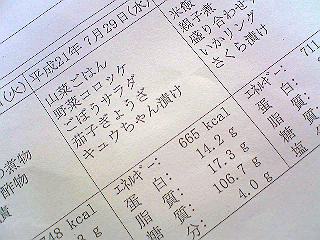 (火)
平成21年 7月29日(水)
山菜ごはん
野菜コロッケ
ごぼうサラダ
茄子ぎょうざ
キュウちゃん漬け
エネルギー: 665 kcal
蛋 白: 14.2 g
脂 質: 17.3 g
糖 質: 106.7 g
分: 4.0 g
煮物
酢物
漬
748 kcal
米飯
親子煮
盛り合わせ
いかリング
さくら漬け
エネルギー: 711
蛋 白
脂 質
糖
塩